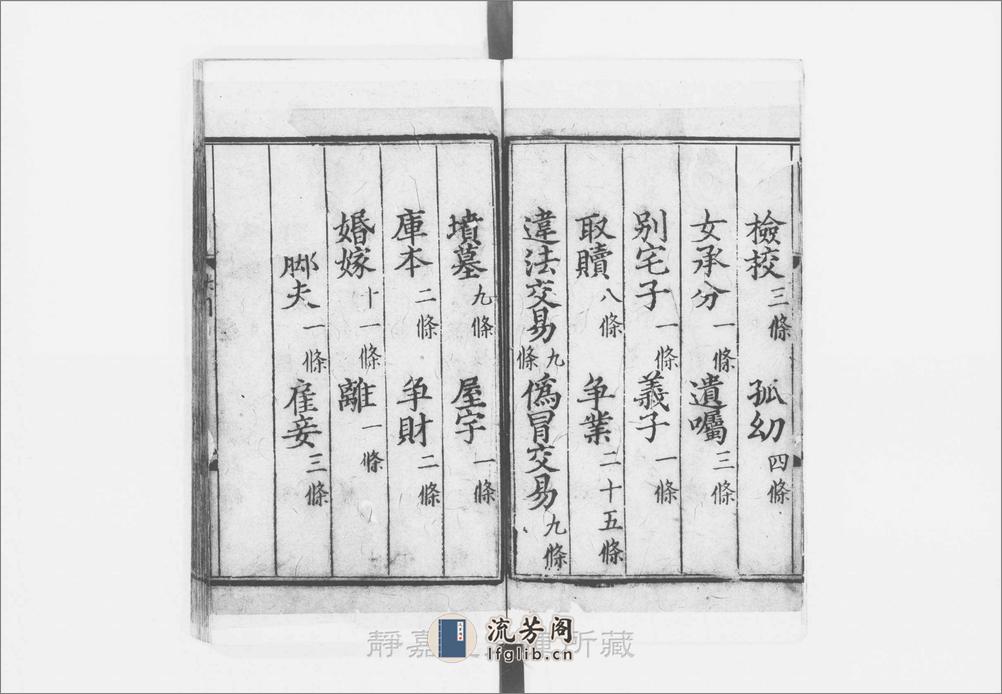 檢校三條　孤幼四條
女承分一條　遺囑三條
別宅子一條　義子一條
取贖八條　爭業二十五條
違法交易九條　僞冒交易九條
墳墓九條　屋宇一條
庫本二條　爭財二條
婚嫁十一條　離一條
脚夫一條　雇妾三條
靜嘉 所藏
流芳阁
lfglib.cn